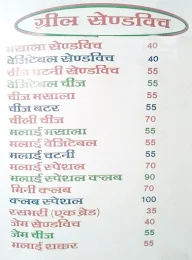 ग्रील सेण्डविच
मसाला सेण्डविच 40
वेजिटेबल सेण्डविच 40
चीज चटनी सेण्डविच 55
वेजिटेबल चीज 55
चीज मसाला 55
चीज बटर 55
चीली चीज 70
मलाई मसाला 55
मलाई वेजिटेबल 55
मलाई चटनी 55
मलाई स्पेशल 70
मलाई स्पेशल क्लब 90
मिनी क्लब 70
क्लब स्पेशल 100
रसभरी (एक ब्रेड) 35
जेम सेण्डविच 40
जेम चीज 55
मलाई शक्कर 55